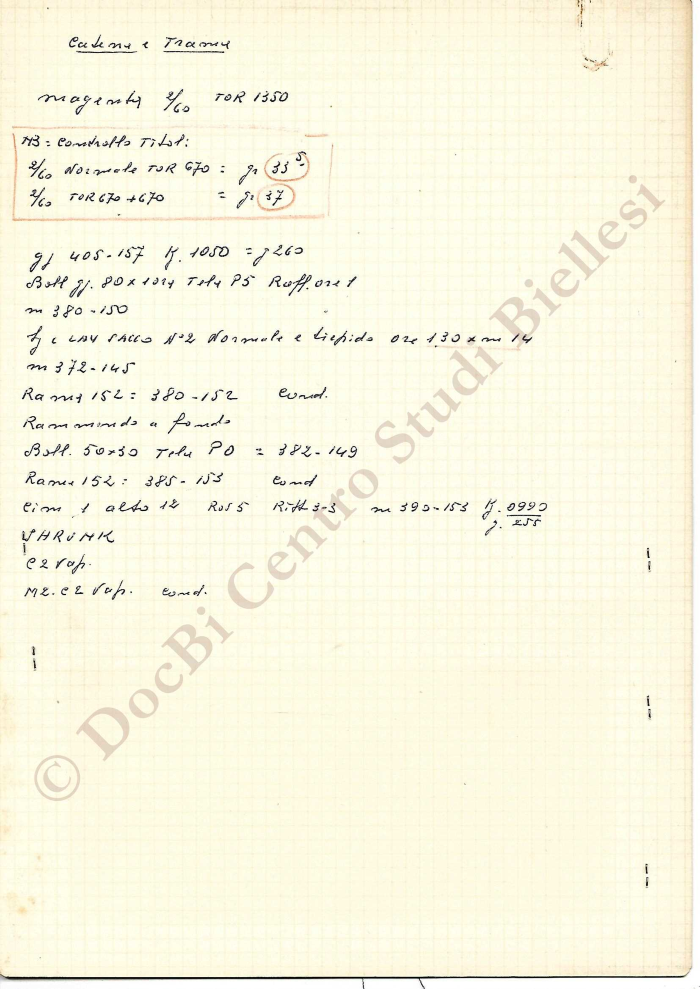 Catena e Trama
Magenta 2/60 TOR 1350
NB = Controllo Titol:
2/60 Normale TOR 670 = gr 33 5
2/60 TOR 670+670 = gr 37
gj 405-157 K. 1050 = g 260
Boll gj. 80x Tela P5 Raff. ore 1
m 380-150
LAV SACCO N°2 Normale e tiepido ore 1,30 x m 14
m 372-145
Rama 152 = 380-152 Cond.
Rammendo a fondo
Boll. 50x30 Tela PO = 382-149
Rama 152 = 385-153 Cond
Cim 1 alto 12 Ros 5 Ritt 3-3 m 390-153 K. 0990
g. 255
SHRUNK
C2 Vap.
M2. C2 Vap. Cond.
© DocBi Centro Studi Biellesi